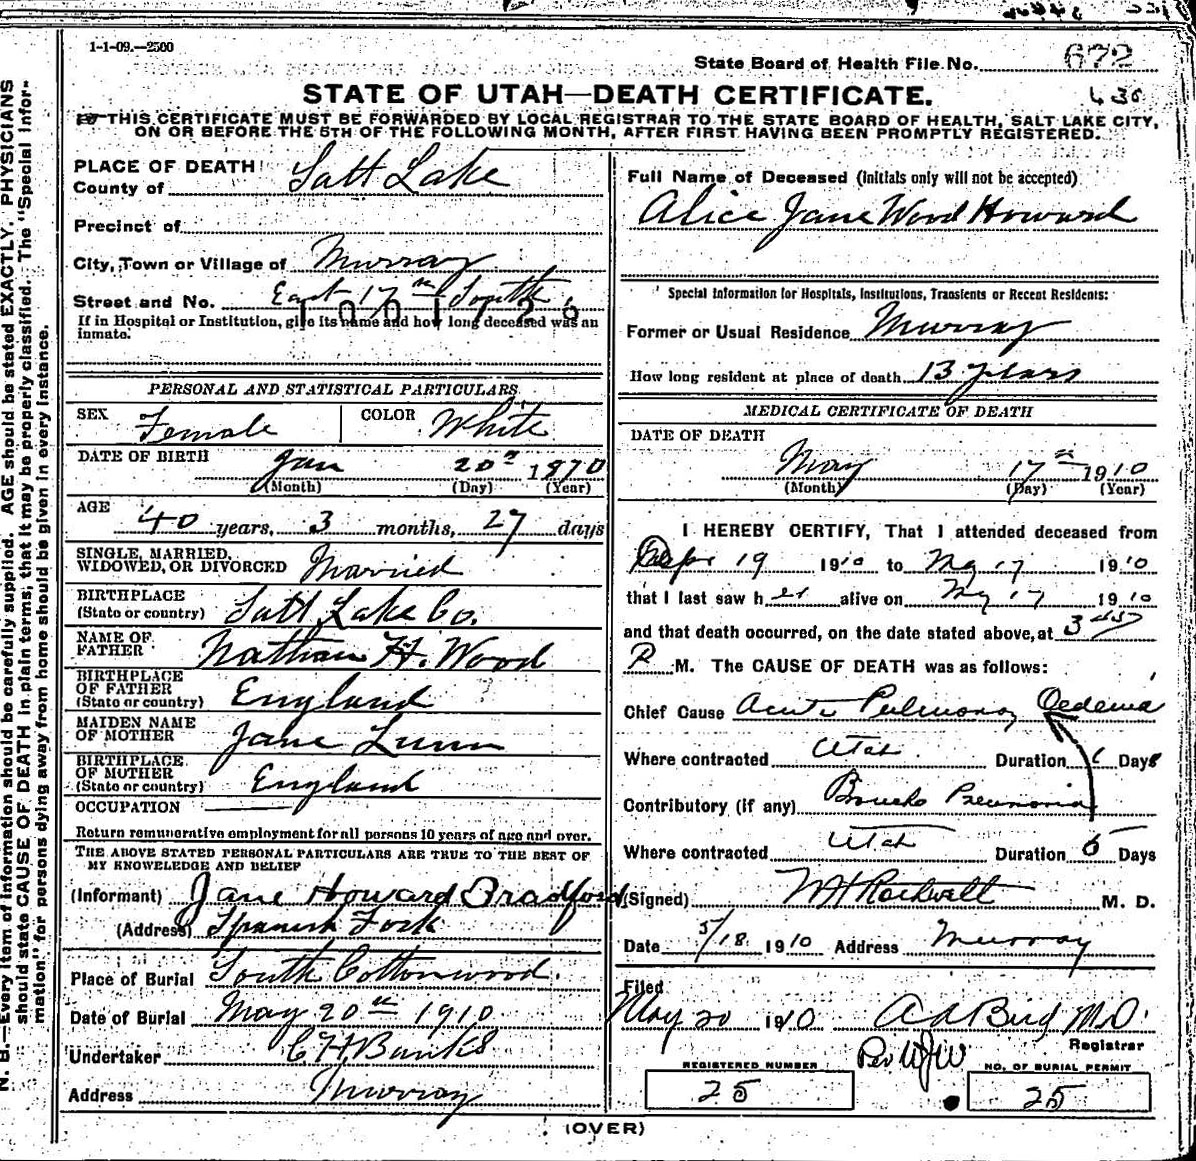 1-1-09.—2500
State Board of Health File No. 672
STATE OF UTAH—DEATH CERTIFICATE.
THIS CERTIFICATE MUST BE FORWARDED BY LOCAL REGISTRAR TO THE STATE BOARD OF HEALTH, SALT LAKE CITY,
ON OR BEFORE THE 5TH OF THE FOLLOWING MONTH, AFTER FIRST HAVING BEEN PROMPTLY REGISTERED.
N. B.—Every item of information should be carefully supplied. AGE should be stated EXACTLY. PHYSICIANS
should state CAUSE OF DEATH in plain terms, that it may be properly classified. The "Special Infor-
mation" for persons dying away from home should be given in every instance.
PLACE OF DEATH
County of Salt Lake
Precinct of
City, Town or Village of Murray
Street and No. East 17th South
1001729
If in Hospital or Institution, give its name and how long deceased was an
inmate.
PERSONAL AND STATISTICAL PARTICULARS
SEX Female COLOR White
DATE OF BIRTH Jan 20th 1870
(Month) (Day) (Year)
AGE 40 years, 3 months, 27 days
SINGLE, MARRIED,
WIDOWED, OR DIVORCED Married
BIRTHPLACE
(State or country) Salt Lake Co.
NAME OF
FATHER Nathan H. Wood
BIRTHPLACE
OF FATHER
(State or country) England
MAIDEN NAME
OF MOTHER Jane Lunn
BIRTHPLACE
OF MOTHER
(State or country) England
OCCUPATION
Return remunerative employment for all persons 10 years of age and over.
THE ABOVE STATED PERSONAL PARTICULARS ARE TRUE TO THE BEST OF
MY KNOWLEDGE AND BELIEF
(Informant) Jane Howard Bradford
(Address) Spanish Fork
Place of Burial South Cottonwood.
Date of Burial May 20th 1910
Undertaker C H Banks
Address Murray
Full Name of Deceased (initials only will not be accepted)
Alice Jane Wood Howard
Special Information for Hospitals, Institutions, Transients or Recent Residents:
Former or Usual Residence Murray
How long resident at place of death 13 years
MEDICAL CERTIFICATE OF DEATH
DATE OF DEATH
May 17th 1910
(Month) (Day) (Year)
I HEREBY CERTIFY, That I attended deceased from
Apr 19 1910 to May 17 1910
that I last saw her alive on May 17 1910
and that death occurred, on the date stated above, at 3 45
P M. The CAUSE OF DEATH was as follows:
Chief Cause Acute Pulmonary Oedema
Where contracted Utah Duration Days
Contributory (if any) Broncho Pneumonia
Where contracted Utah Duration Days
(Signed) W H Rothwell M. D.
Date 5/18 1910 Address Murray
Filed
May 20 1910 A A Bird M.D.
Registrar
REGISTERED NUMBER
25
NO. OF BURIAL PERMIT
25
(OVER)